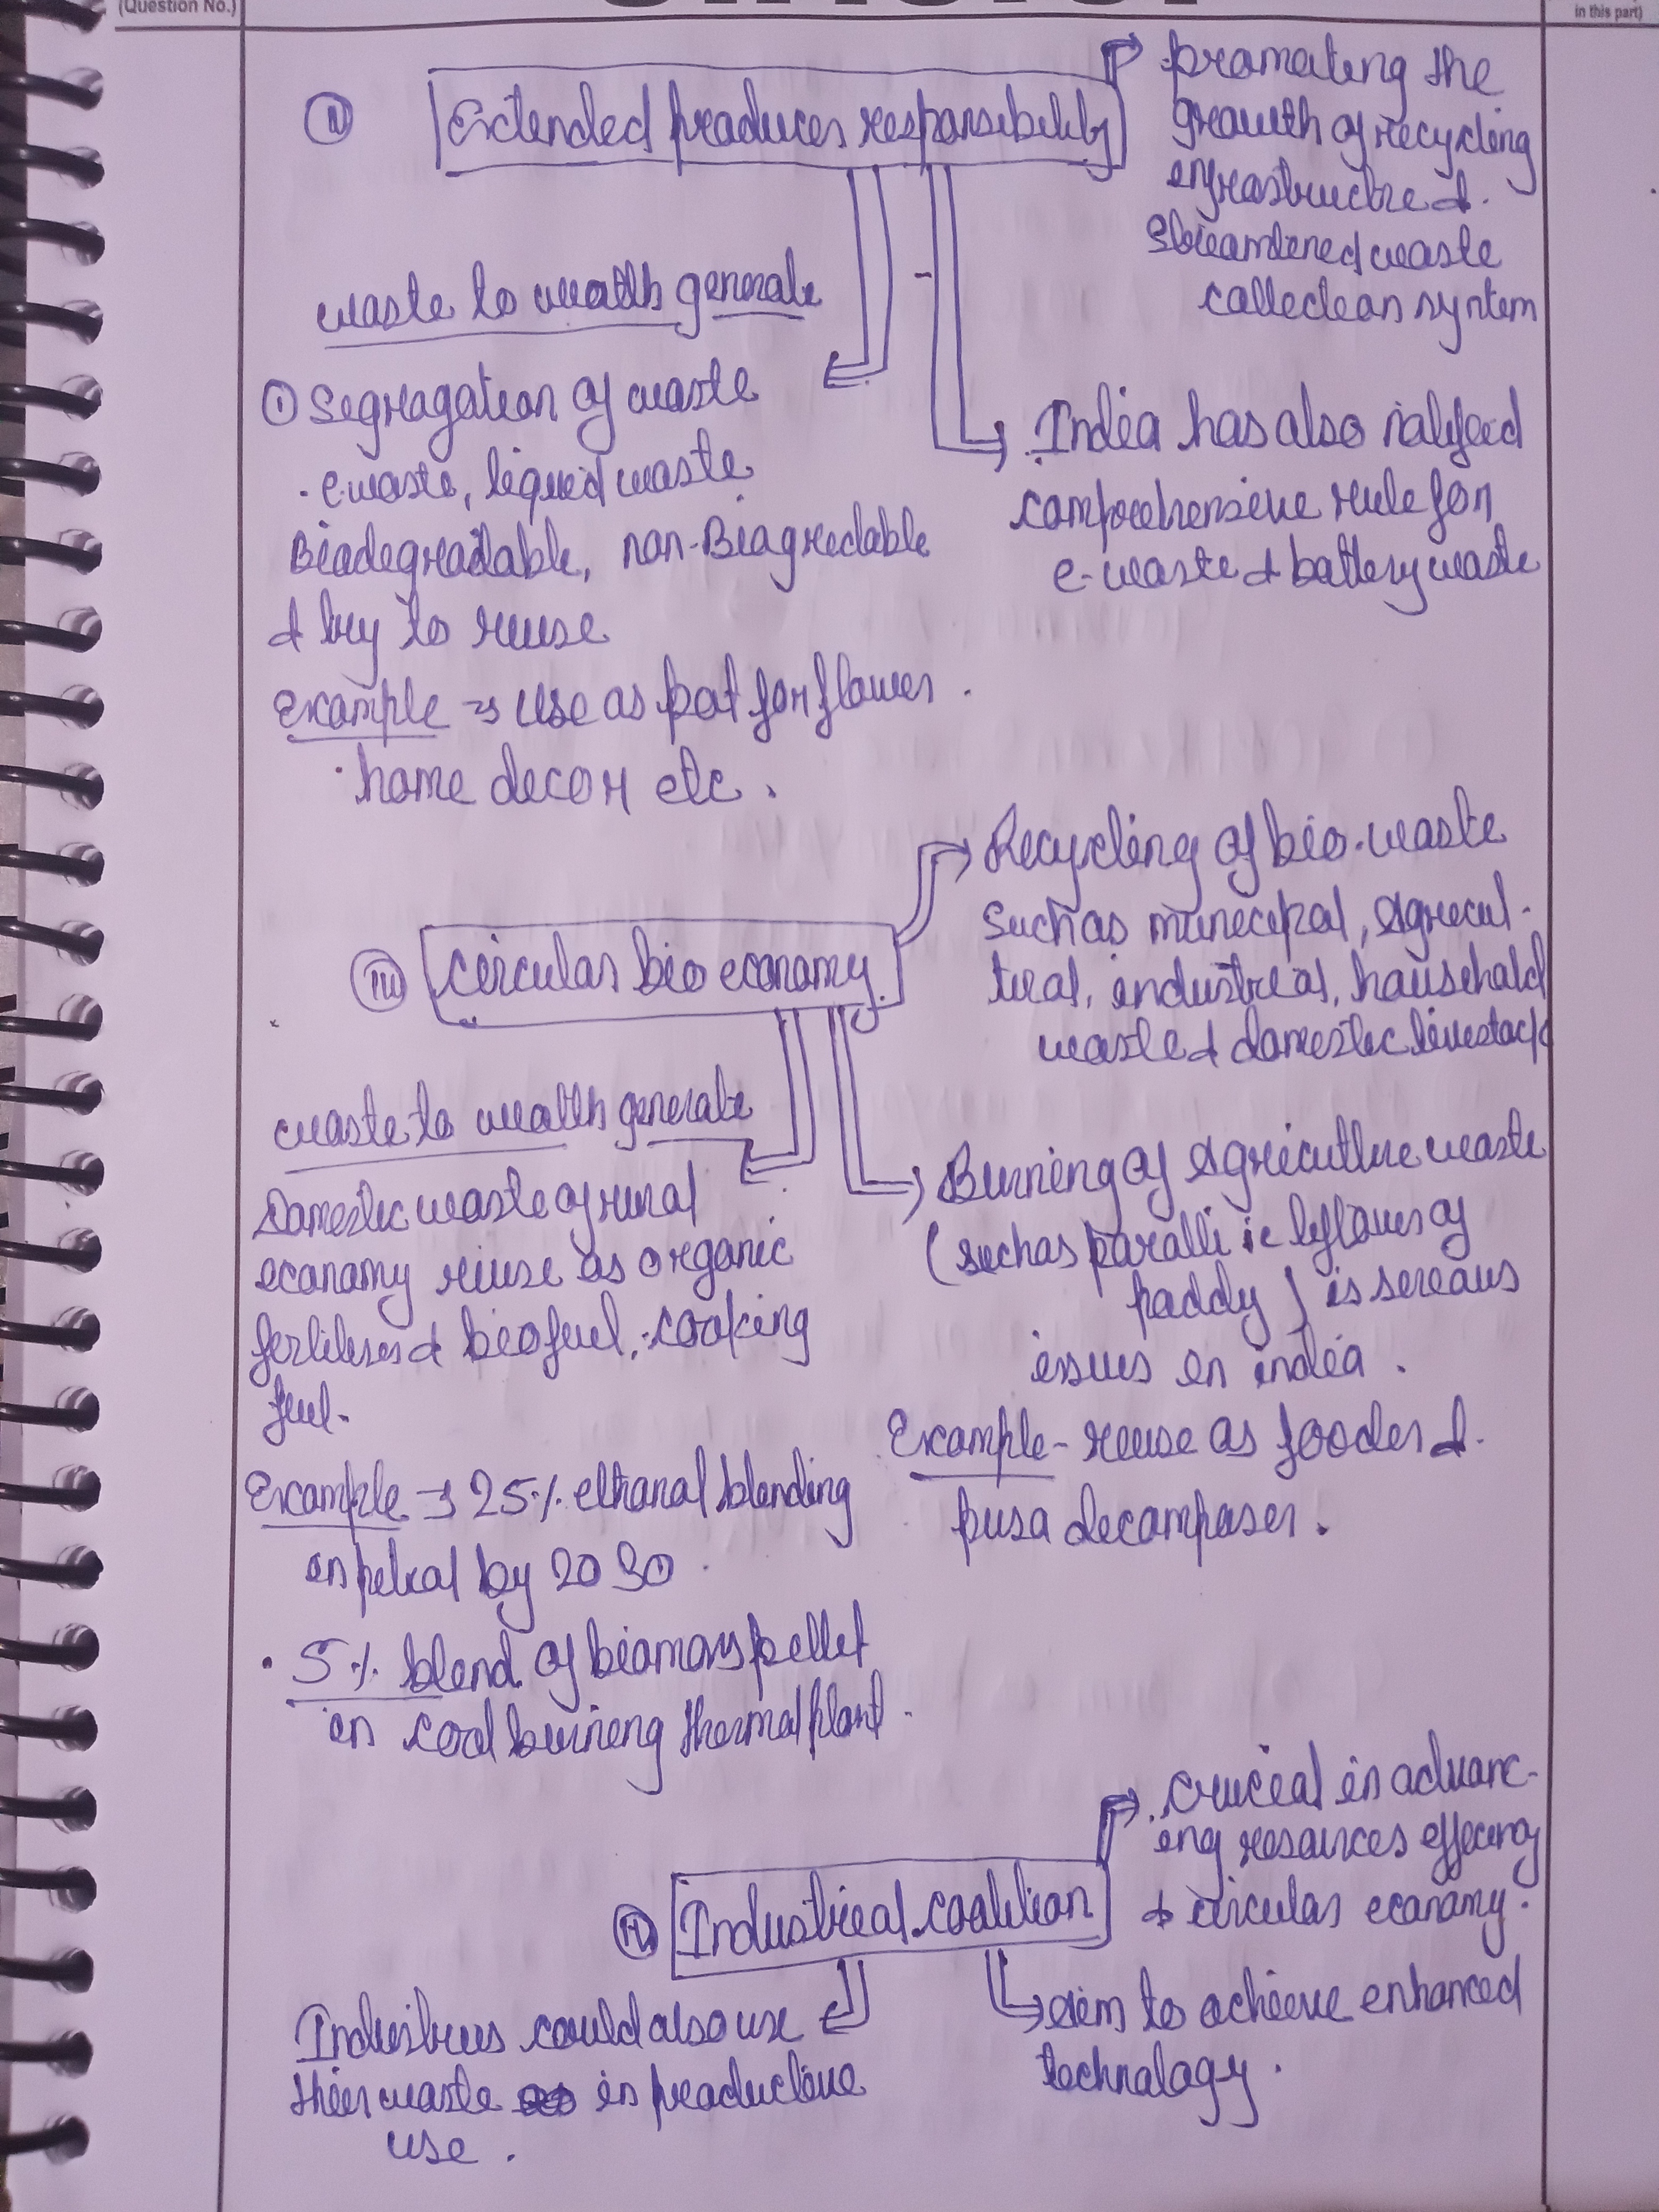 (Question No.)
in this part)
II Extended producer responsibility
promoting the
growth of recycling
infrastructure &
streamlined waste
collection system
waste to wealth generate
① Segragation of waste
. e.waste, liquid waste
Biodegradable, non-Biagredable
& try to reuse
Example ⇒ use as pot for flower.
. home decor etc.
India has also notified
comprehensive rule for
e-waste & battery waste
III circular bio economy
Recycling of bio-waste
such as municipal, Agricul-
tural, industrial, household
waste & domestic livestock
waste to wealth generate
Domestic waste of rural
economy reuse as organic
fertiliser & biofuel, cooking
fuel.
Example → 25% ethanol blending
in petrol by 2030
. 5% blend of biomass pellet
in coal burning thermal plant.
Burning of Agriculture waste
(such as paralli ie leftover of
paddy) is serious
issues in india.
Example - reuse as fooder &
pusa decomposer.
IV Industrial coalition
crucial in advanc-
ing resources efficiency
& circular economy.
Aim to achieve enhanced
technology.
Industries could also use
their waste in productive
use.